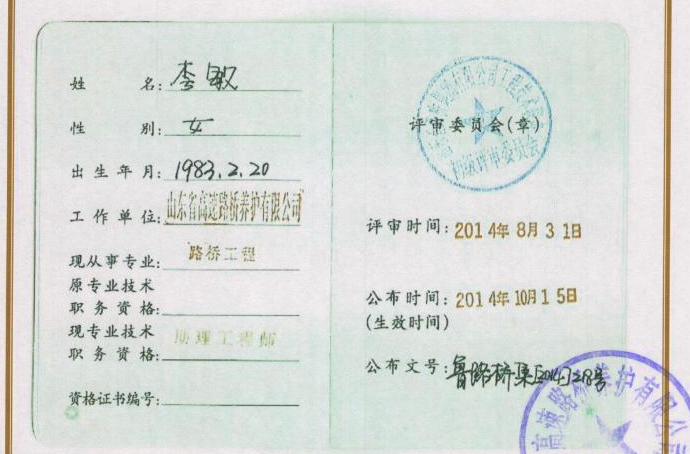 姓 名: 李敏
性 别: 女
出生年月: 1983.2.20
工作单位: 山东省高速路桥养护有限公司
现从事专业: 路桥工程
原专业技术
职务资格:
现专业技术
职务资格: 助理工程师
资格证书编号:
评审委员会(章)
初级评审委员会
评审时间: 2014年8月31日
公布时间: 2014年10月15日
(生效时间)
公布文号: 鲁路桥集[2014]218号
高速路桥养护有限公司